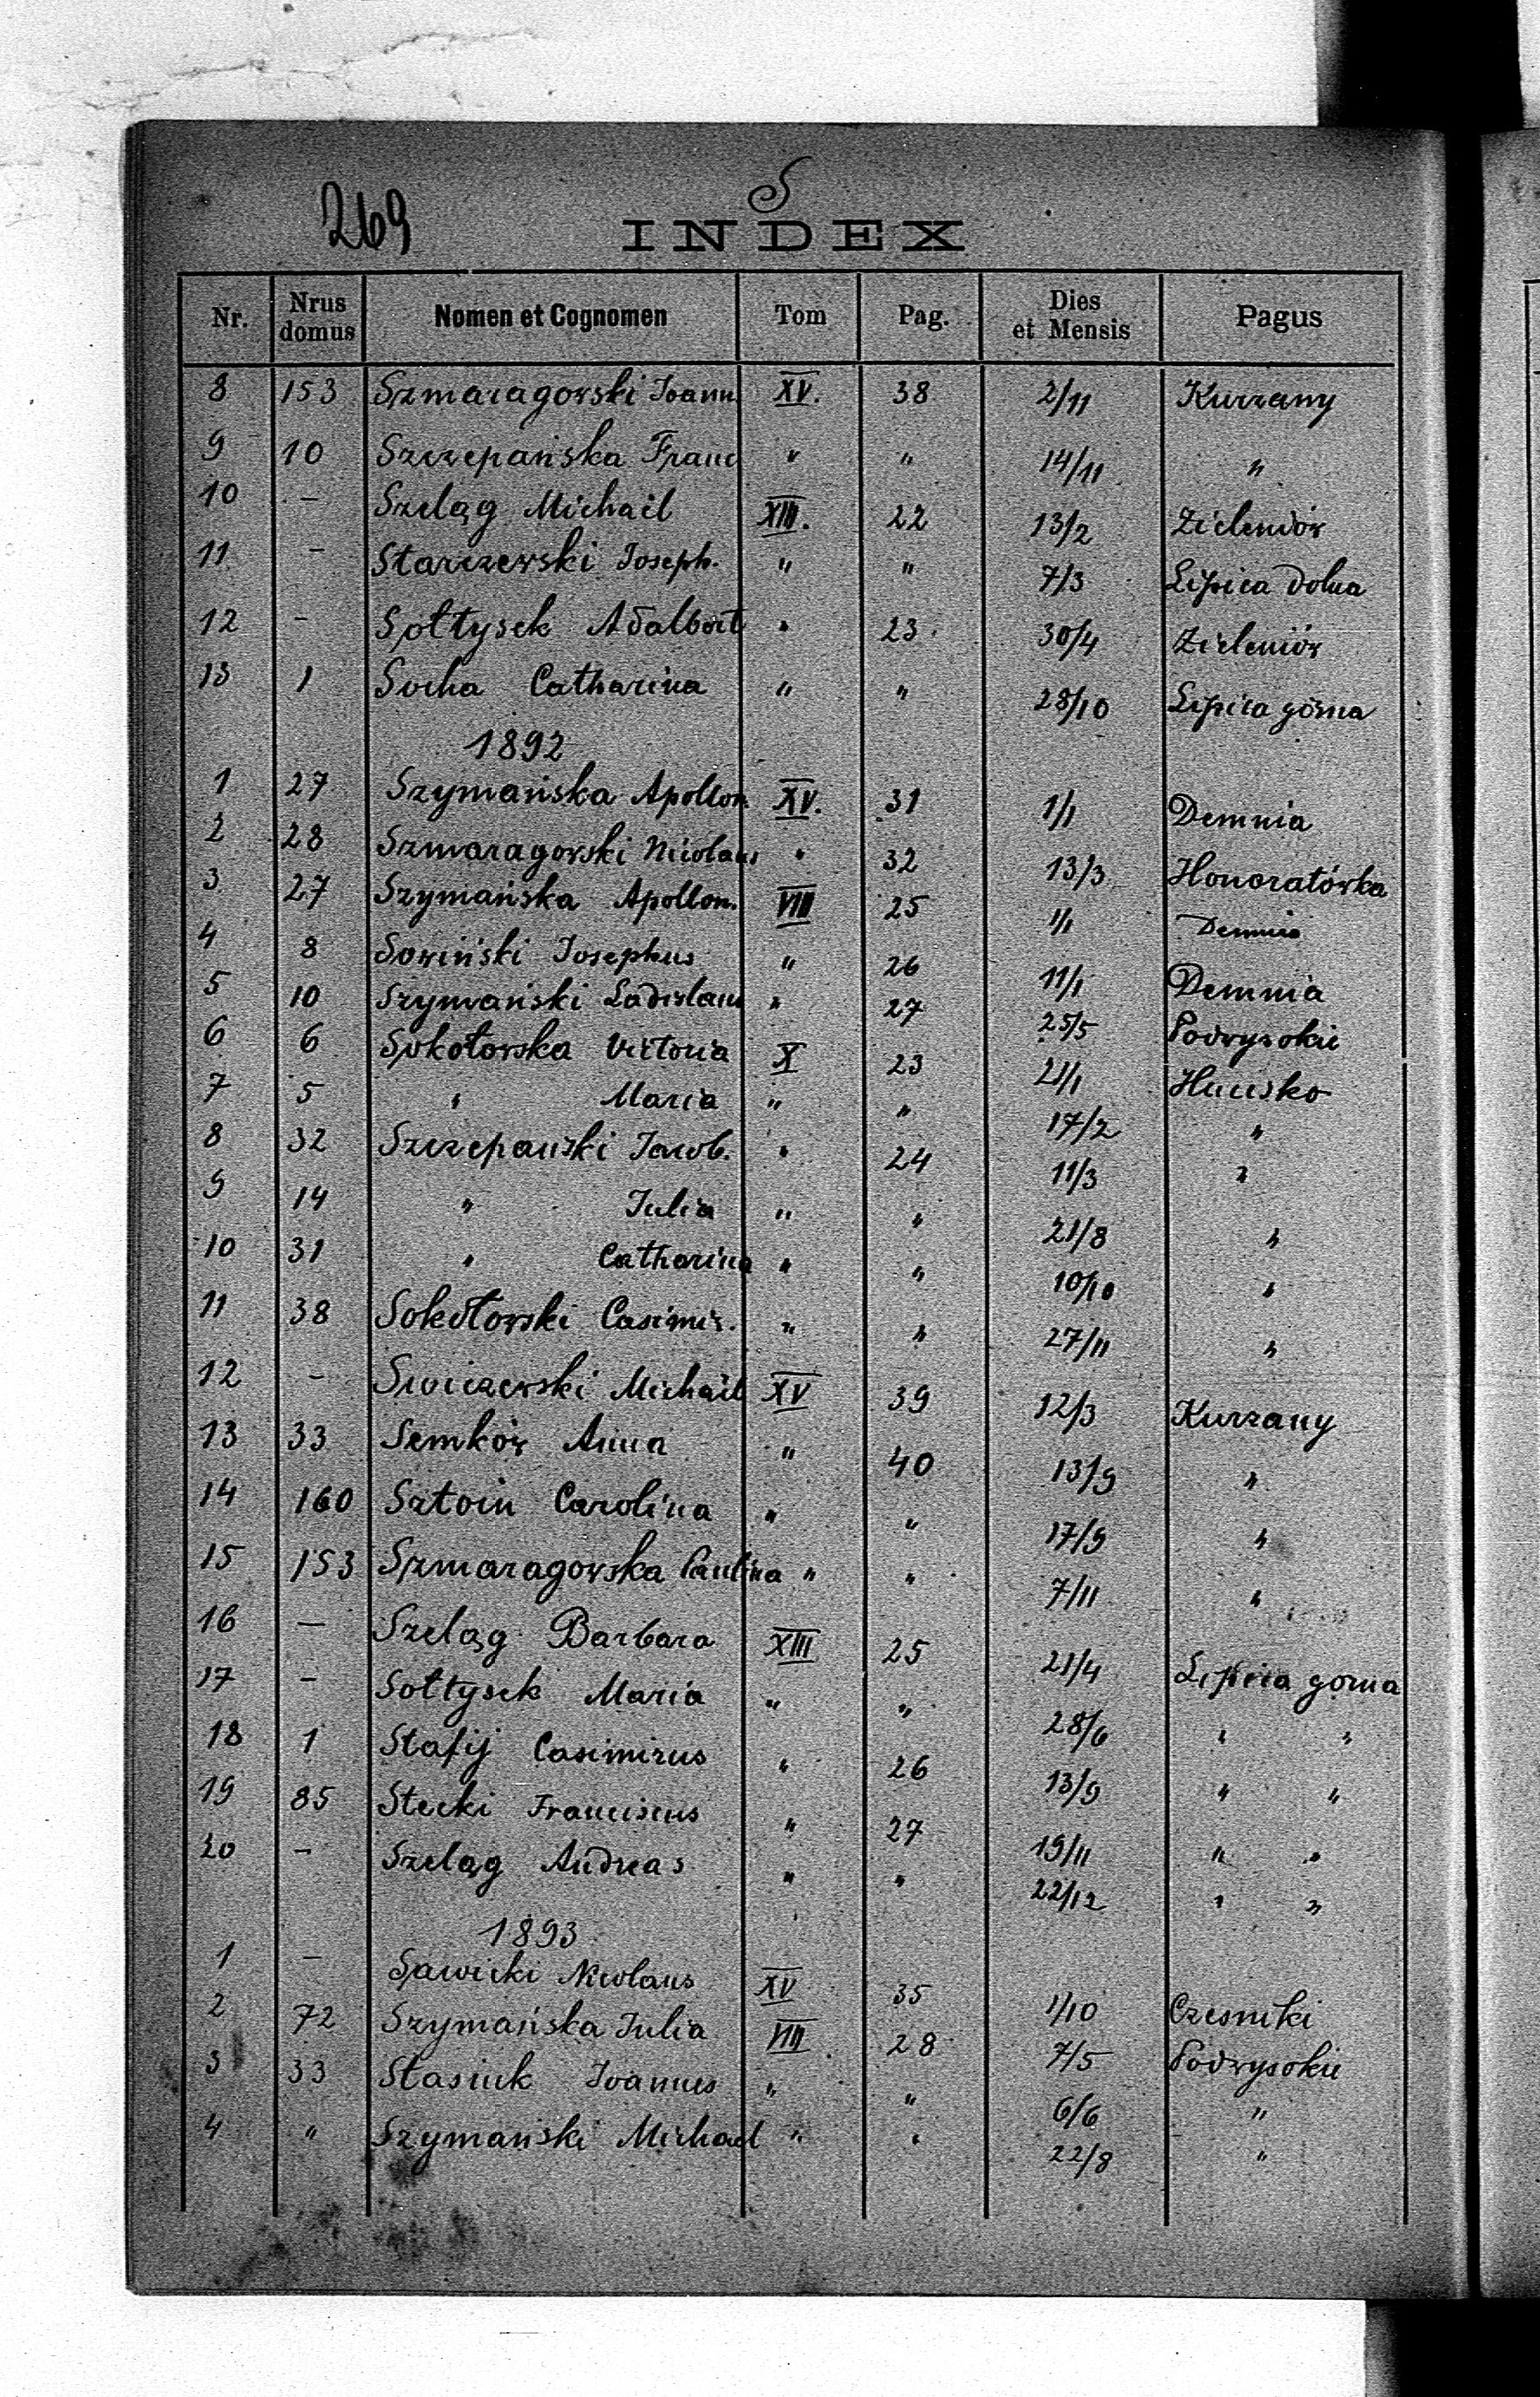 269
S
INDEX
Nr. Nrus domus Nomen et Cognomen Tom Pag. Dies et Mensis Pagus
8 153 Szmaragowski Joann. XV. 38 2/11 Kurzany
9 10 Szczepańska Franc " " 14/11 "
10 – Szeląg Michail XIII. 22 13/2 Zieleniów
11 – Starczewski Joseph. " " 7/3 Lipica dolna
12 – Sołtysek Adalbert " 23 30/4 Zieleniów
13 1 Socha Catharina " " 28/10 Lipica górna
1892
1 27 Szymańska Apollon. XV. 31 1/1 Demnia
2 28 Szmaragowski Nicolaus " 32 13/3 Honoratówka
3 27 Szymańska Apollon. VIII 25 1/1 Demnia
4 8 Sowiński Josephus " 26 11/1 Demnia
5 10 Szymański Ladislaus " 27 25/5 Podwysokie
6 6 Sokołowska Victoria X 23 21/1 Hucisko
7 5 " Maria " " 17/2 "
8 32 Szczepański Jacob. " 24 11/3 "
9 14 " Julia " " 21/8 "
10 31 " Catharina " " 10/10 "
11 38 Sokołowski Casimir. " " 27/11 "
12 – Michail XV 39 12/3 Kurzany
13 33 Semków Anna " 40 13/9 "
14 160 Sztoin Carolina " " 17/9 "
15 153 Szmaragowska Paulina " " 7/11 "
16 – Szeląg Barbara XIII 25 21/4 Lipica gorna
17 – Sołtysek Maria " " 28/6 " "
18 1 Stafij Casimirus " 26 13/9 " "
19 85 Stecki Franciscus " 27 19/11 " "
20 – Szeląg Andreas " " 22/12 " "
1893
1 – Sawicki Nicolaus XV 35 1/10 Czesniki
2 72 Szymańska Julia VIII 28 7/5 Podwysokie
3 33 Stasiuk Joannes " " 6/6 "
4 " Szymański Michael " " 22/8 "